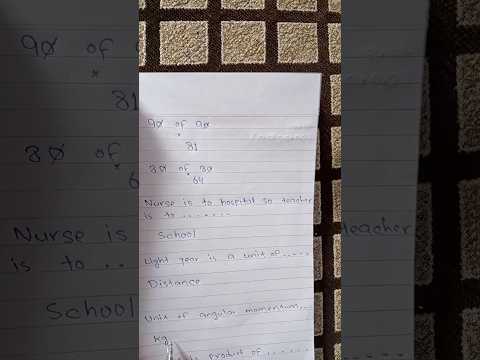 90 of 90
81
80 of 80
64
Nurse is to hospital so teacher
is to .......
School
Light year is a unit of .....
Distance
Unit of angular momentum...
kg
product of ......